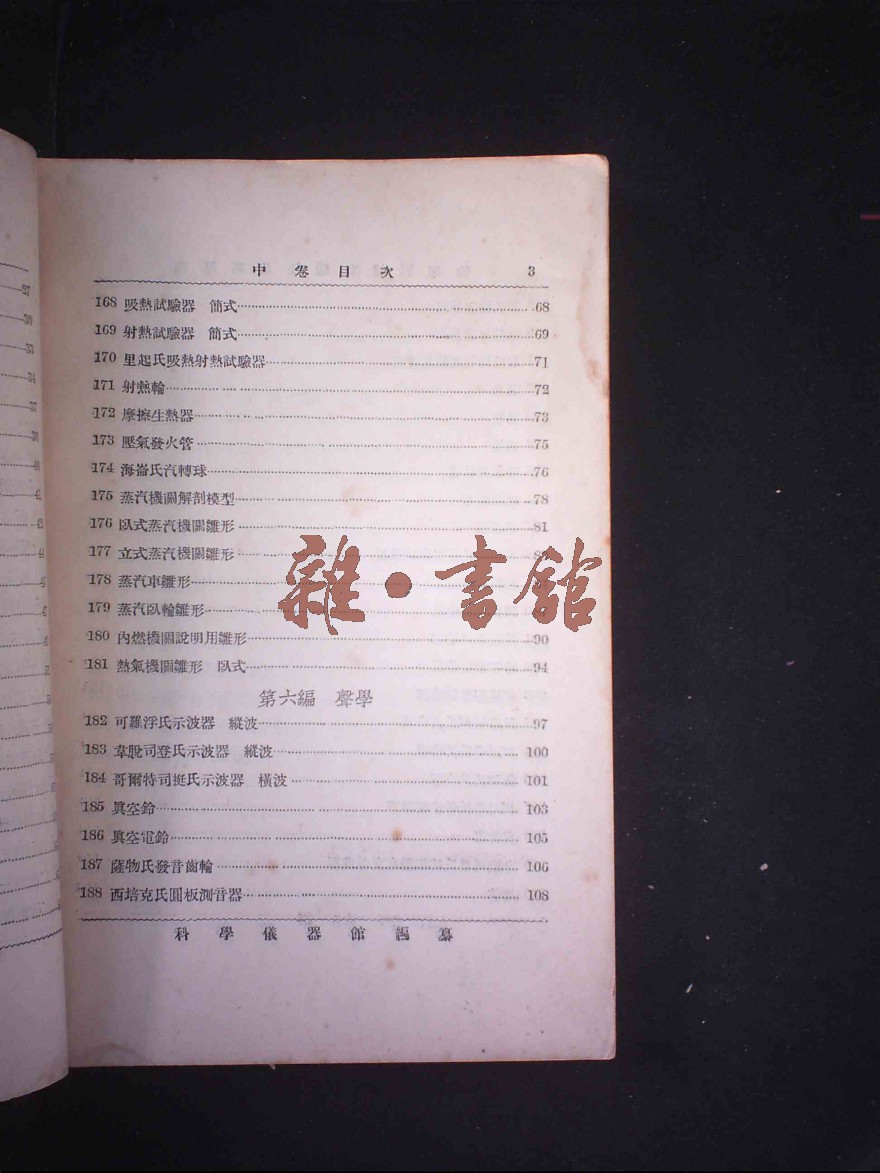 中卷目次 3
168 吸熱試驗器 簡式 68
169 射熱試驗器 簡式 69
170 里起氏吸熱射熱試驗器 71
171 射熱輪 72
172 摩擦生熱器 73
173 壓氣發火管 75
174 海崙氏汽轉球 76
175 蒸汽機關解剖模型 78
176 臥式蒸汽機關雛形 81
177 立式蒸汽機關雛形
178 蒸汽車雛形
179 蒸汽臥輪雛形
180 內燃機關說明用雛形 90
181 熱氣機關雛形 臥式 94
第六編 聲學
182 可羅浮氏示波器 縱波 97
183 韋脫司登氏示波器 縱波 100
184 哥爾特司挺氏示波器 橫波 101
185 眞空鈴 103
186 眞空電鈴 105
187 薩物氏發音齒輪 106
188 西培克氏圓板測音器 108
科學儀器館編纂
雜·書館